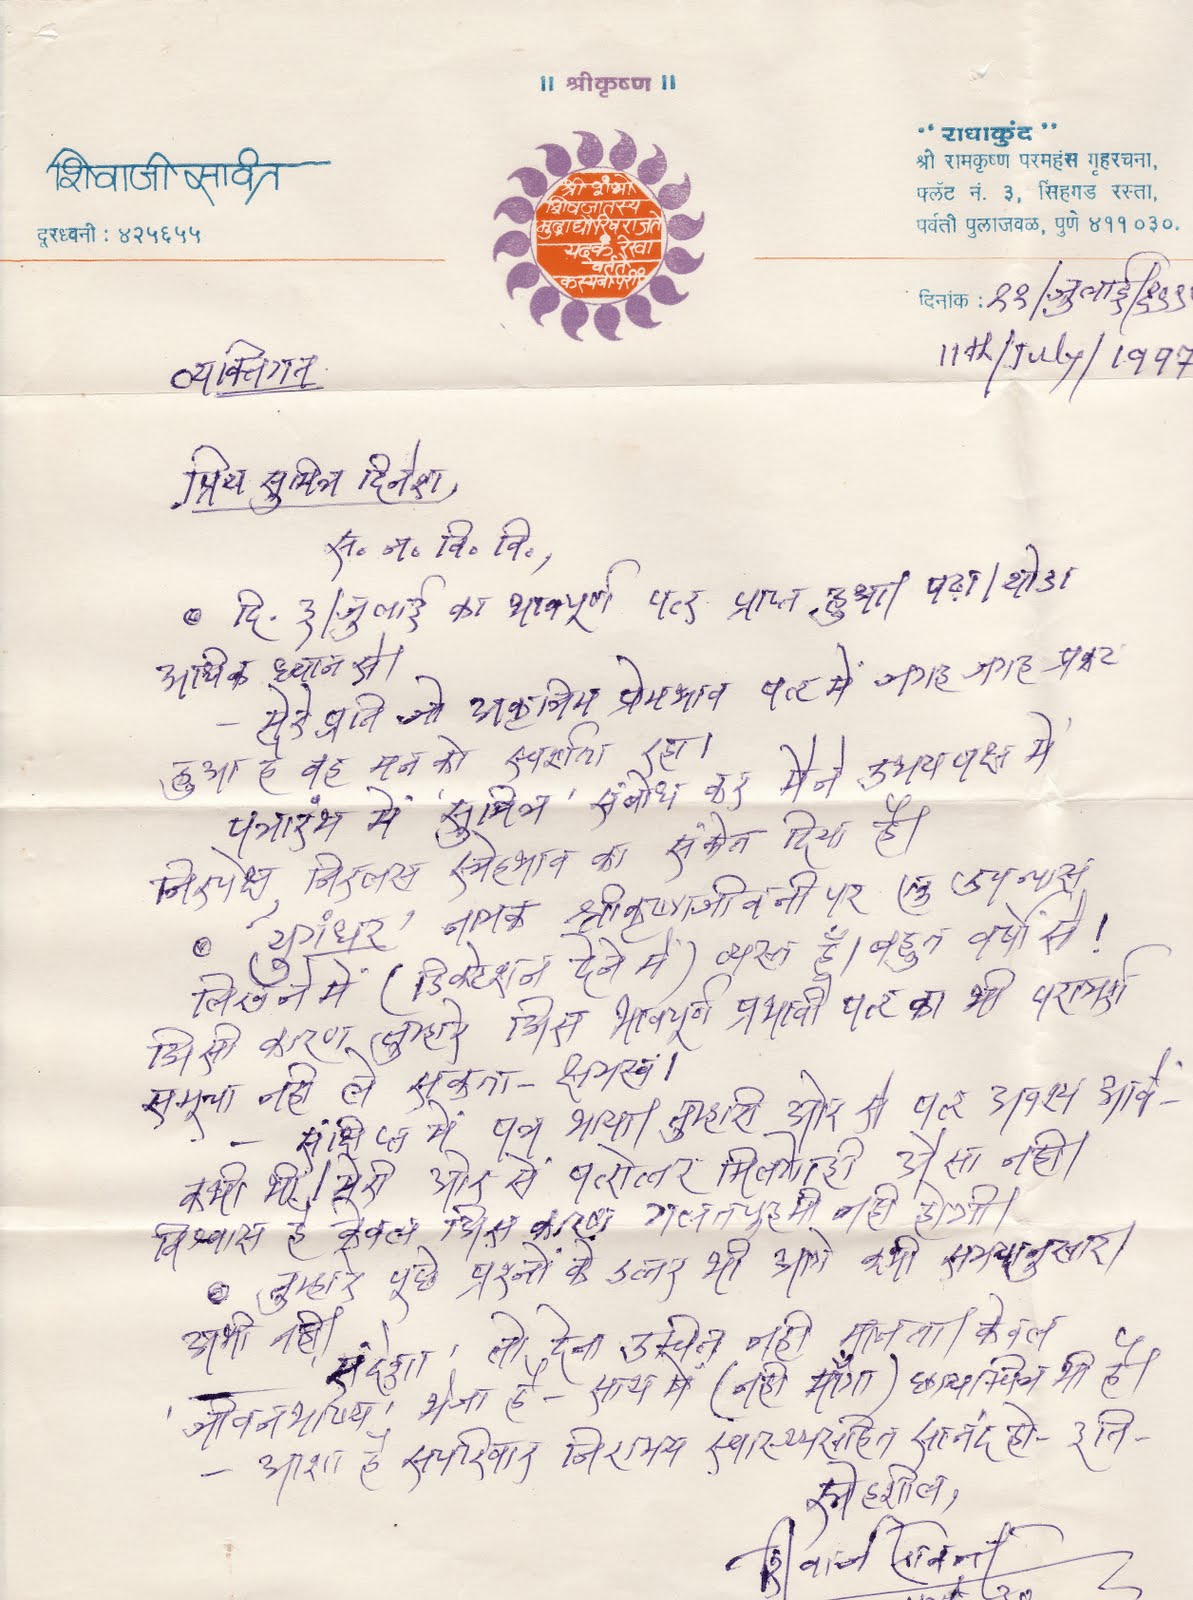 ॥ श्रीकृष्ण ॥
शिवाजी सावंत
दूरध्वनी : ४२५६५५
श्री शंभो
शिवजातस्य
मुद्राद्यौरिवराजते
यदंक रेखा
वर्तते
कस्यनोपरी
" राधाकुंद "
श्री रामकृष्ण परमहंस गृहरचना,
फ्लॅट नं. ३, सिंहगड रस्ता,
पर्वती पुलाजवळ, पुणे ४११०३०.
दिनांक : ११/जुलाई/१९९
11th/July/1997
व्यक्तिगत
प्रिय सुमित्र दिनेश,
स. न. वि. वि.,
दि. ३/जुलाई का भावपूर्ण पत्र प्राप्त हुआ। पढ़ा। थोडा
अधिक ध्यान से।
– मेरे प्रति जो अकृत्रिम प्रेमभाव पत्र में जगह जगह प्रकट
हुआ है वह मन को स्पर्शता रहा।
पत्रारंभ में 'सुमित्र' संबोध कर मैने उभयपक्ष में
निरपेक्ष, निरलस स्नेहभाव का संकेत दिया है।
'युगंधर' नामक श्रीकृष्णजीवनी पर उपन्यास
लिखने में (डिक्टेशन देने में) व्यस्त हूँ। बहुत वर्षों से!
अिसी कारण तुम्हारे अिस भावपूर्ण प्रभावी पत्र का भी परामर्श
समूचा नही ले सकता – क्षमस्व।
– संक्षिप्त में पत्र भाया। तुम्हारी ओर से पत्र अवश्य आवें –
कभी भी। मेरी ओर से पत्रोत्तर मिलेगाही अैसा नही।
विश्वास है केवल अिस कारण गलतफहमी नही होगी।
तुम्हारे पूछे प्रश्नों के उत्तर भी आगे कभी समयानुसार।
अभी नही।
'संदेश' तो देना उचित नही मानता। केवल
'जीवनभाष्य' भेजा है – साथ में (नही माँगा) छायाचित्र भी है।
– आशा है सपरिवार निरामय स्वास्थ्यसहित सानंद हो – इति –
स्नेहशील,
शिवाजी सावंत